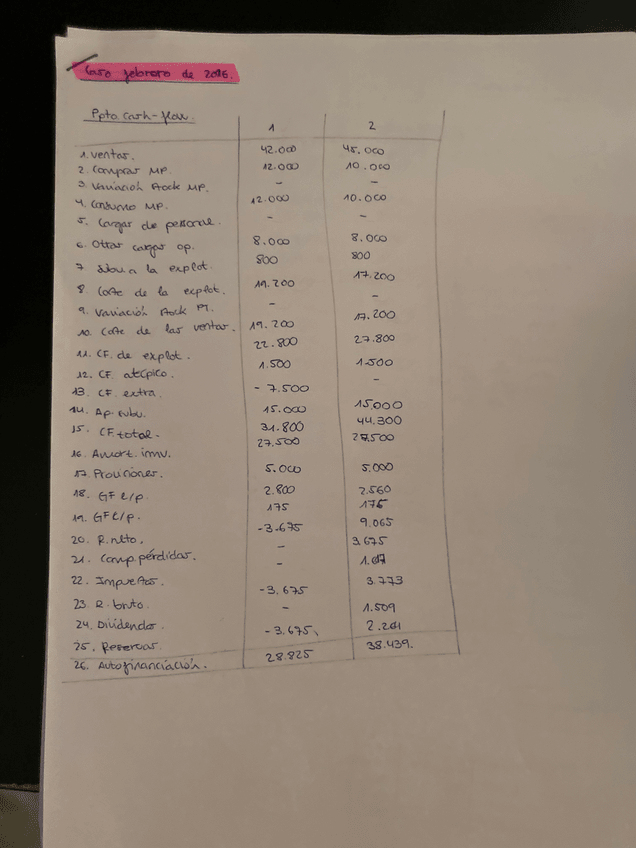 Caso febrero de 2016.
Ppto Cash-flow.
1 2
1. Ventas. 42.000 45.000
2. Compras MP. 12.000 10.000
3. Variación stock MP. - -
4. Consumo MP. 12.000 10.000
5. Cargas de personal. - -
6. Otras cargas op. 8.000 8.000
7. a la explot. 800 800
8. Coste de la explot. 19.200 17.200
9. Variación stock PT. - -
10. Coste de las ventas. 19.200 17.200
11. CF. de explot. 22.800 27.800
12. CF. atípico. 1.500 1.500
13. CF. extra. - 7.500 -
14. Ap. subv. 15.000 15.000
15. CF total. 31.800 44.300
16. Amort. inmv. 27.500 27.500
17. Provisiones. 5.000 5.000
18. GF l/p. 2.800 2.560
19. GF c/p. 175 175
20. R. nto. -3.675 9.065
21. Comp. pérdidas. - 3.675
22. Impuestos. -
23. R. bruto. -3.675 3.773
24. Dividendos - 1.509
25. Reservas. -3.675
26. Autofinanciación. 28.825 38.439.